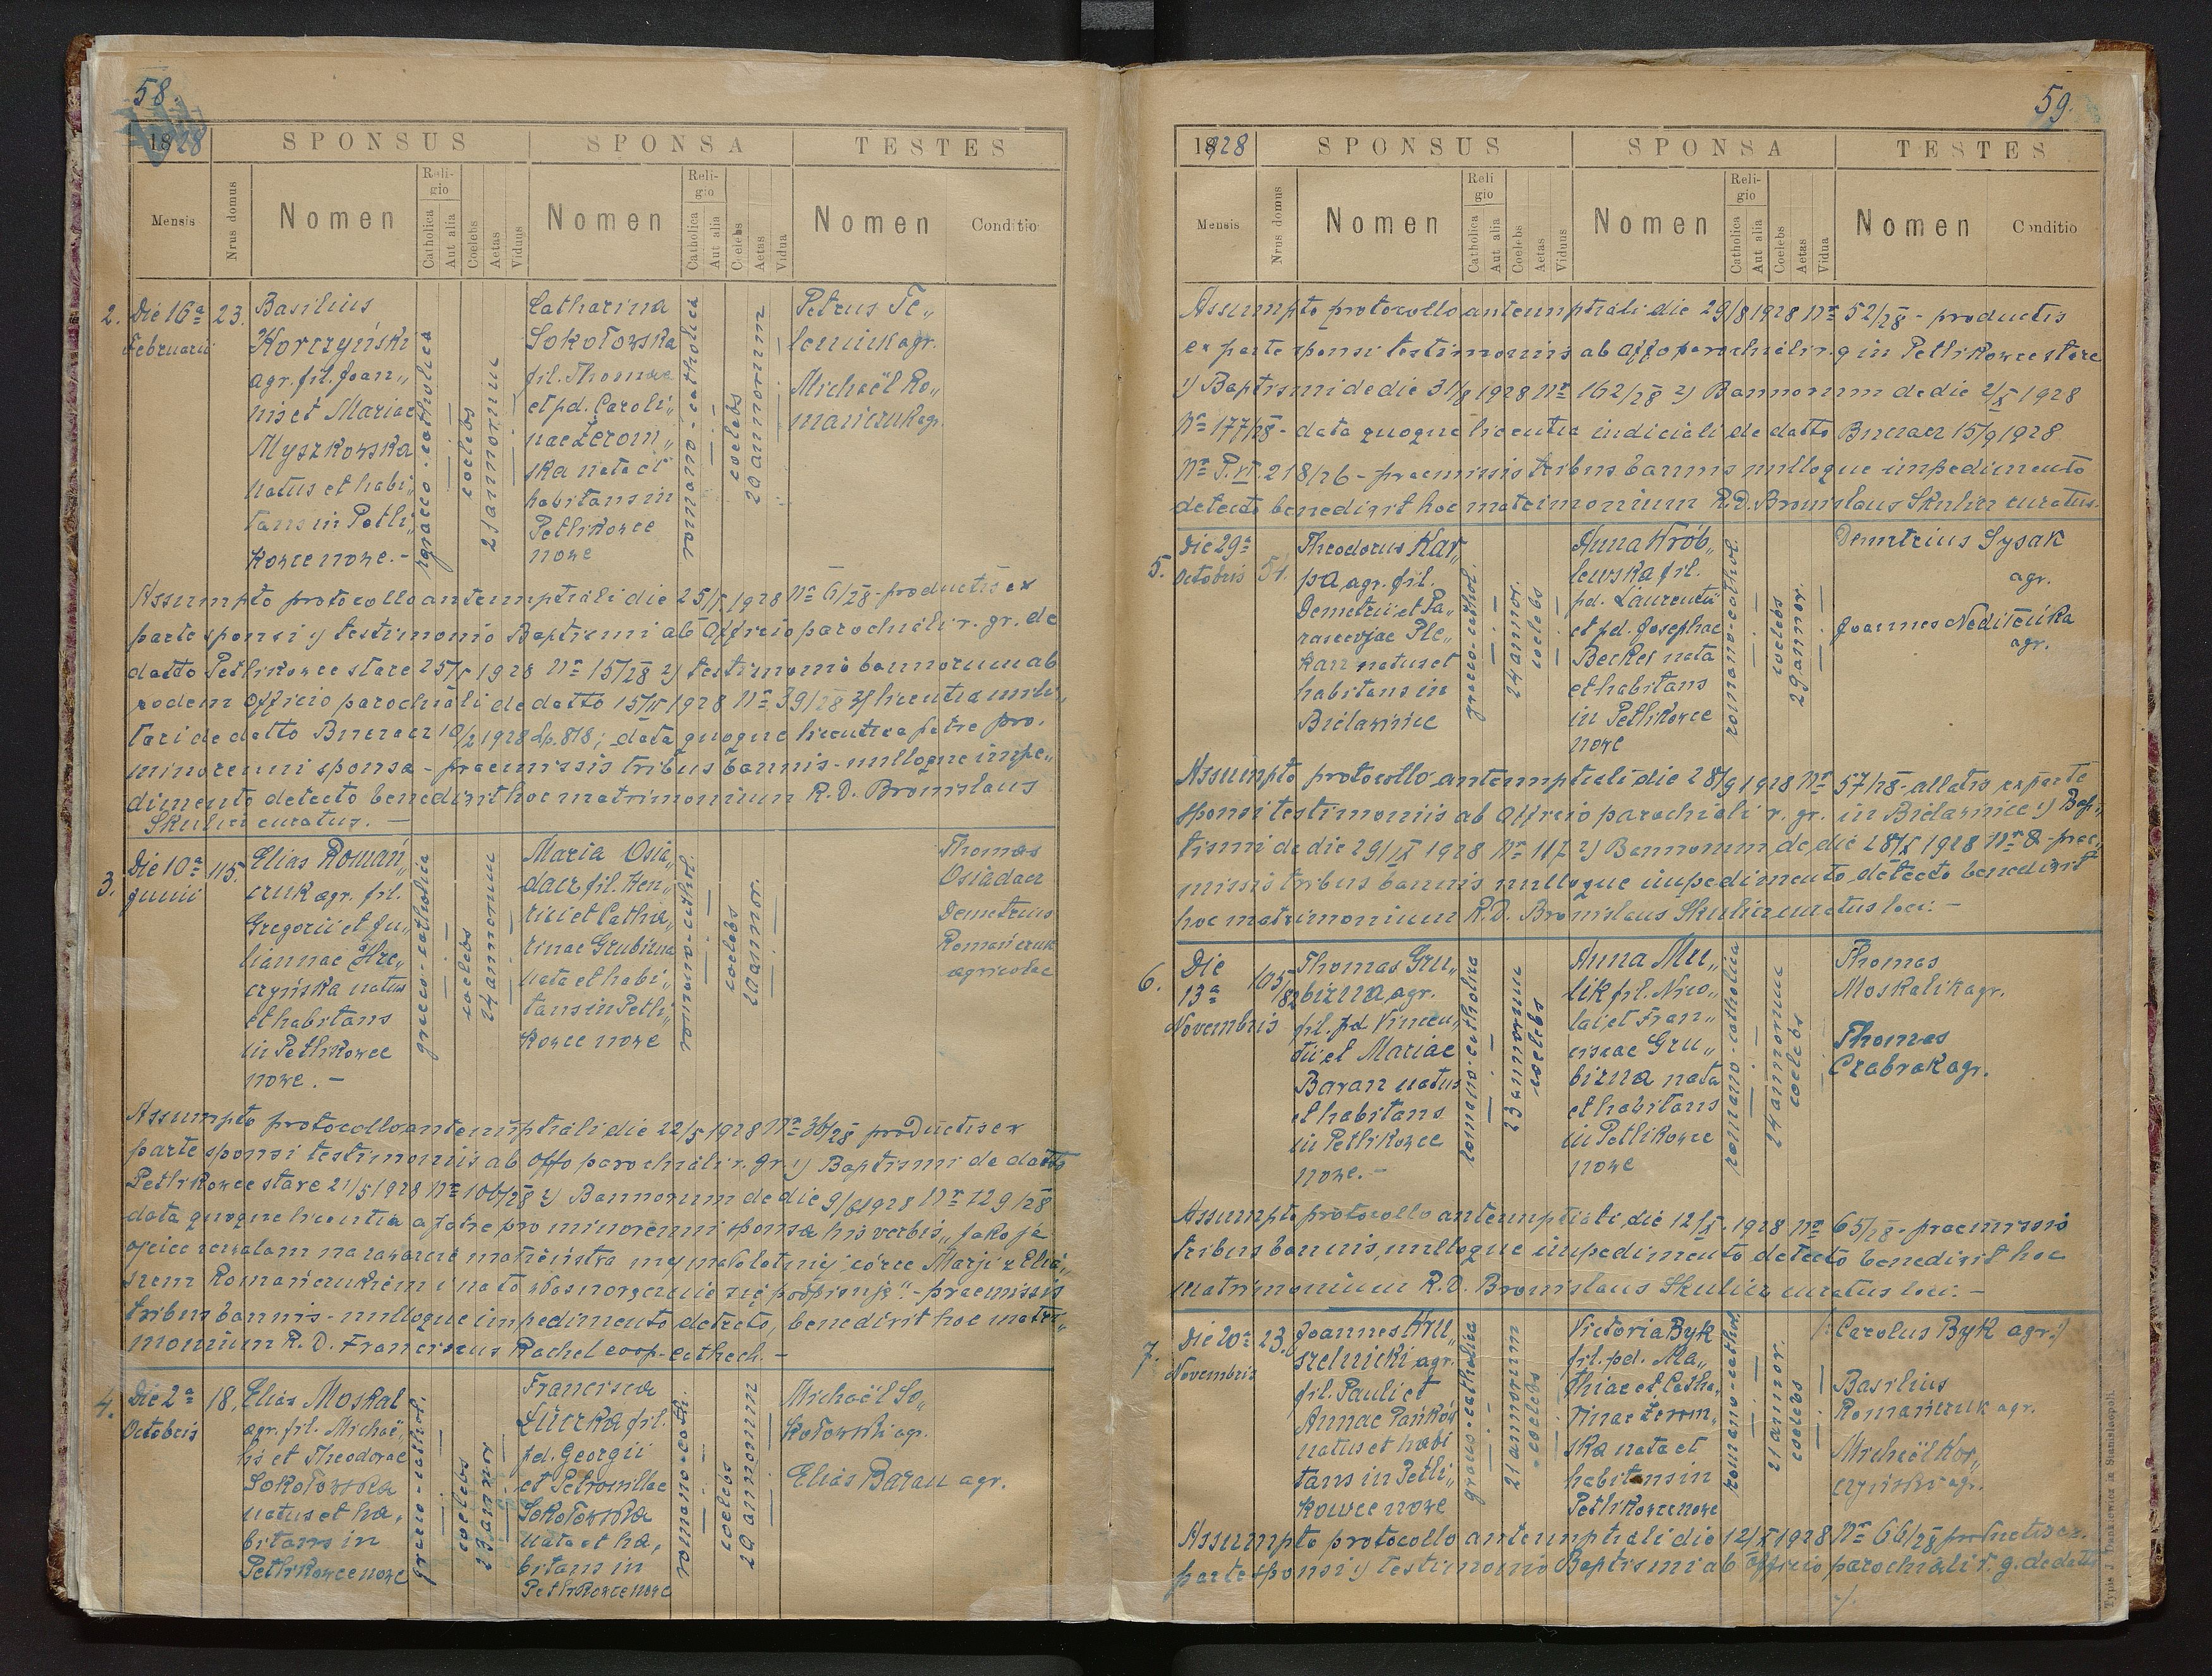 58.
1828
SPONSUS
SPONSA
TESTES
Mensis
Nrus domus
Nomen
Religio
Catholica
Aut alia
Coelebs
Aetas
Viduus
Nomen
Religio
Catholica
Aut alia
Coelebs
Aetas
Vidua
Nomen
Conditio
2.
Die 16a
Februarii
23.
Basilius
Korczyński
agr. fil. Joan„
nis et Mariae
Myszkowska
natus et habi„
tans in Petli„
kowce nowe.-
graeco-catholica
coelebs
21 annorum
Catharina
Sokołowska
fil. Thomae
et pd. Caroli„
nae Żerom„
ska nata et
habitans in
Petlikowce
nowe
romano-catholica
coelebs
20 annorum
Petrus Te„
leniuk agr.
Michaël Ro„
mańczuk agr.
Assumpto protocollo antenuptiali die 25/I 1928 Nr 6/28 - productis ex
parte sponsi 1) testimonio Baptismi ab Officio parochiali r. gr. de
datto Petlikowce stare 25/I 1928 Nr 15/28 2) testimonio bannorum ab
eodem Officio parochiali de datto 15/II 1928 Nr 39/28 3) licentia mili„
tari de datto Buczacz 10/2 1928 Lp. 878; data quoque licentia patre pro
minorenni sponsa - praemissis tribus bannis - nulloque impe„
dimento detecto benedixit hoc matrimonium R. D. Bronislaus
Skulicz curatus. -
3.
Die 10a
Junii
115.
Elias Romań„
czuk agr. fil.
Gregorii et Ju„
liannae Hre„
czyńska natus
et habitans
in Petlikowce
nowe. -
graeco-catholica
coelebs
24 annorum
Maria Osia„
dacz fil. Hen„
rici et Catha„
rinae Grubizna
nata et habi„
tans in Petli„
kowce nowe
romano-cathol.
coelebs
20 annor.
Thomas
Osiadacz
Demetrius
Romańczuk
agricolae
Assumpto protocollo antenuptiali die 22/5 1928 Nr 36/28 productis ex
parte sponsi testimoniis ab offo parochiali r. gr. 1) Baptismi de datto
Petlikowce stare 21/5 1928 Nr 106/28 2) Bannorum de die 9/6 1928 Nr 129/28
data quoque licentia a patre pro minorenni sponsa his verbis „Jako je„
ojciec zezwalam na zawarcie małżeństwa mej małoletniej córce Marji z Elia„
szem Romańczukiem i na to własnoręcznie się podpisuję". - praemissis
tribus bannis - nulloque impedimento detecto, benedixit hoc matri„
monium R. D. Franciscus Rachel coop.-cathech. -
4.
Die 2a
Octobris
18.
Elias Moskal
agr. fil. Michaë„
lis et Theodorae
Sokołowska
natus et ha„
bitans in
Petlikowce nowe
graeco-cathol.
coelebs
23 annor
Francisca
Łuczka fil.
pd. Georgii
et Petronillae
Sokołowska
nata et ha„
bitans in
Petlikowce nowe
romano-cath.
coelebs
20 annorum
Michaël So„
kołowski agr.
Elias Baran agr.
59.
1928
SPONSUS
SPONSA
TESTES
Mensis
Nrus domus
Nomen
Religio
Catholica
Aut alia
Coelebs
Aetas
Viduus
Nomen
Religio
Catholica
Aut alia
Coelebs
Aetas
Vidua
Nomen
Conditio
Assumpto protocollo antenuptiali die 29/8 1928 Nr 52/28 - productis
ex parte sponsi testimoniis ab Offo parochiali r. g in Petlikowce stare
1) Baptismi de die 31/8 1928 Nr 162/28 2) Bannorum de die 2/X 1928
Nr 177/28 - data quoque licentia iudiciali de datto Buczacz 15/9 1928
Nr P. VI. 218/26 - praemissis tribus bannis nulloque impedimento
detecto benedixit hoc matrimonium R. D. Bronislaus Skulicz curatus.
5.
Die 29a
Octobris
54.
Theodorus Kar„
pa, agr. fil.
Demetrii et Pa„
rascevjae Ple„
kan natus et
habitans in
Bielawińce
graeco-cathol.
24 annor.
coelebs
Anna Wrób„
lewska fil.
pd. Laurentii
et pd. Josephae
Becker nata
et habitans
in Petlikowce
nowe
romano-cathol.
coelebs
29 annor.
Demetrius Sysak
agr.
Joannes
agr.
Assumpto protocollo antenuptiali die 28/9 1928 Nr 57/28 - allatis ex parte
sponsi testimoniis ab Officio parochiali r. gr. in Bielawińce 1) Bap„
tismi de die 29/IX 1928 Nr 117 2) Bannorum de die 28/X 1928 Nr 8 - prae„
missis tribus bannis nulloque impedimento detecto benedixit
hoc matrimonium R. D. Bronislaus Skulicz curatus loci. -
6.
Die
13a
Novembris
105/82
Thomas Gru„
bizna, agr.
fil. pd Vincen„
tii et Mariae
Baran natus
et habitans
in Petlikowce
nowe. -
romano-catholica
23 annorum
coelebs
Anna Mu„
lik fil. Nico„
lai et Fran„
ciscae Gru„
bizna nata
et habitans
in Petlikowce
nowe
romano-catholica
24 annorum
coelebs
Thomas
Moskalik agr.
Thomas
Czabrak agr.
Assumpto protocollo antenuptiali die 12/X 1928 Nr 65/28 - praemissis
tribus bannis, nulloque impedimento detecto benedixit hoc
matrimonium R. D. Bronislaus Skulicz curatus loci. -
7.
Die 20a
Novembris
23.
Joannes Kru„
szelnicki agr.
fil. Pauli et
Annae Pańków
natus et habi
tans in Petli„
kowce nowe
graeco-catholica
21 annorum
coelebs
Victoria Byk
fil. pd. Ma„
thiae et Catha„
rinae Żerom„
ska nata et
habitans in
Petlikowce nowe
romano-cathol.
21 annor.
coelebs
/: Carolus Byk agr:/
Basilius
Romańczuk agr.
Michaël Kor„
czyński agr.
Assumpto protocollo antenuptiali die 12/X 1928 Nr 66/28 productis ex
parte sponsi 1) testimonio Baptismi ab Officio parochiali r. g. de datto
./.
Typis J. Dankiewicz in Stanislaopoli.